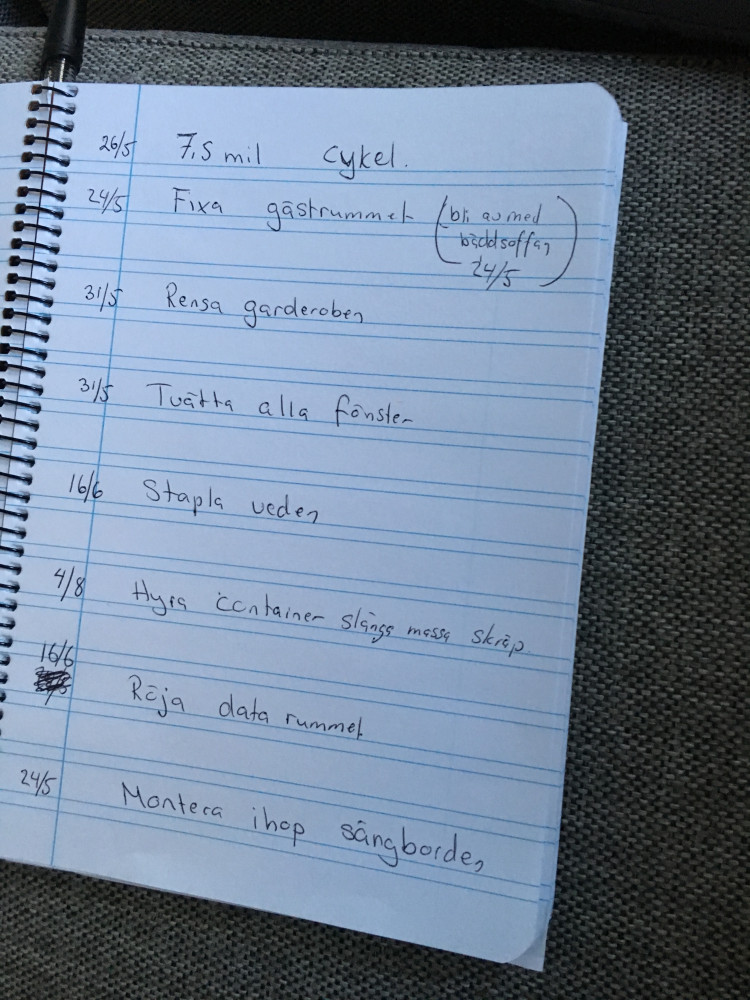 26/5 7,5 mil cykel.
24/5 Fixa gästrummet (bli av med
bäddsoffan
24/5)
31/5 Rensa garderoben
31/5 Tvätta alla fönster
16/6 Stapla veden
4/8 Hyra container slänga massa skräp.
16/6
Röja data rummet
24/5 Montera ihop sängborden